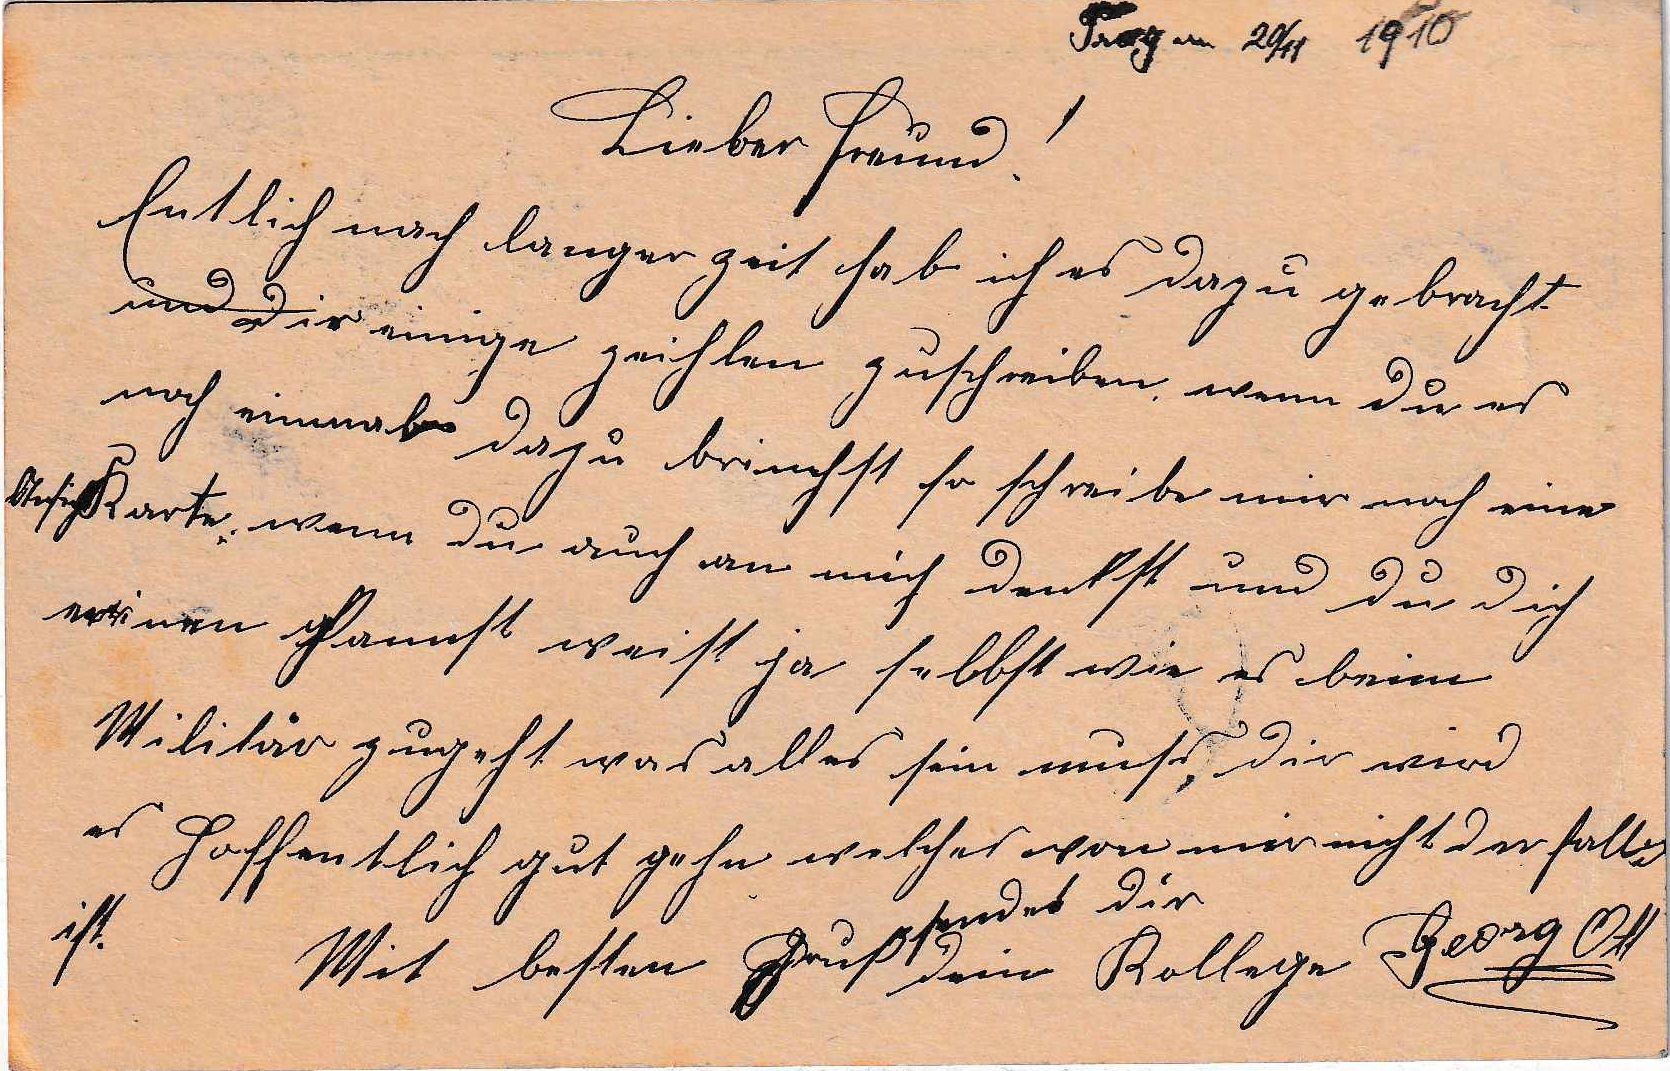 Prag am 20/11 1910
Lieber Freund!
Entlich nach langer zeit hab ich es dazu gebracht
und dir einige zeihlen zuschreiben, wenn du es
noch einmal dazu brinchst so schreibe mir noch eine
Ansich Karte, wenn du auch an mich denkst und du dich
erinen kannst weist ja selbst wie es beim
Militär zugeht was alles sein muss, dir wird
es Hoffentlich gut gehn welches von mir nicht der fall
ist.
Mit besten Gruß sendet dir
dein Kollege Georg Ott